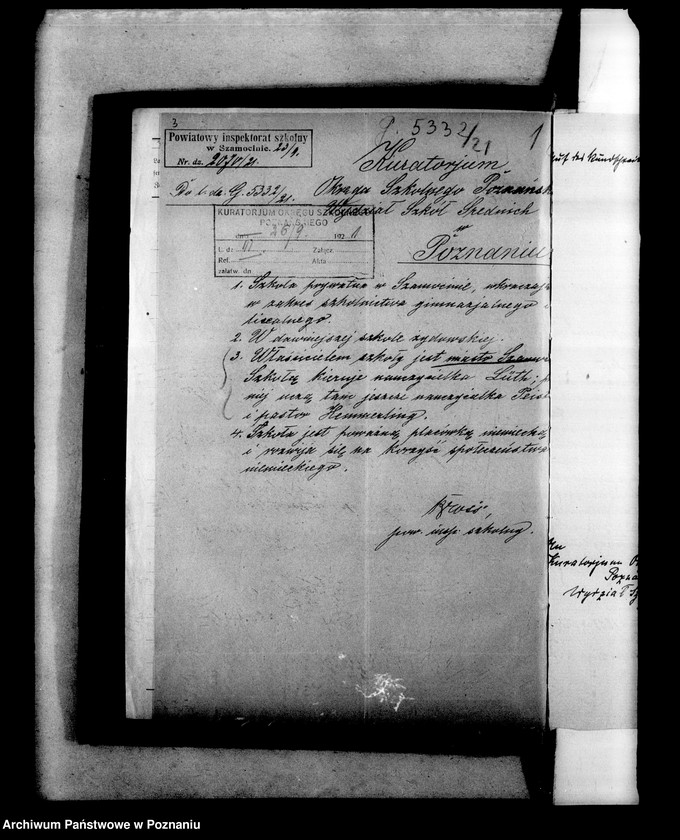 3
G. 5332/21
1
Powiatowy inspektorat szkolny
w Szamocinie. 23/9.
Nr. dz. 2070/21.
Do l. dz. G. 5332/21.
Kuratorjum
Okręgu Szkolnego Poznańsk
Wydział Szkół Średnich
w
Poznaniu
KURATORJUM OKRĘGU SZKOLNEGO
POZNAŃSKIEGO
dnia 26/9. 1921
L. dz. Załącz.
Ref. Akta
załatw. dn.
1. Szkoła prywatna w Szamocinie, wkraczają
w zakres szkolnictwa gimnazjalnego i
licealnego.
2. W dawniejszej szkole żydowskiej.
3. Właścicielem szkoły jest miasto Szamo
Szkołą kieruje nauczycielka Lüth; p
niej uczą tam jeszcze nauczycielka
i pastor Hemmerling.
4. Szkoła jest poważną placówką niemiecką
i rozwija się na korzyść społeczeństwa
niemieckiego.
pow. insp. szkolny.
Auf das Rundschreib
An
Kuratorjum O
Pozna
Wydział S
Archiwum Państwowe w Poznaniu